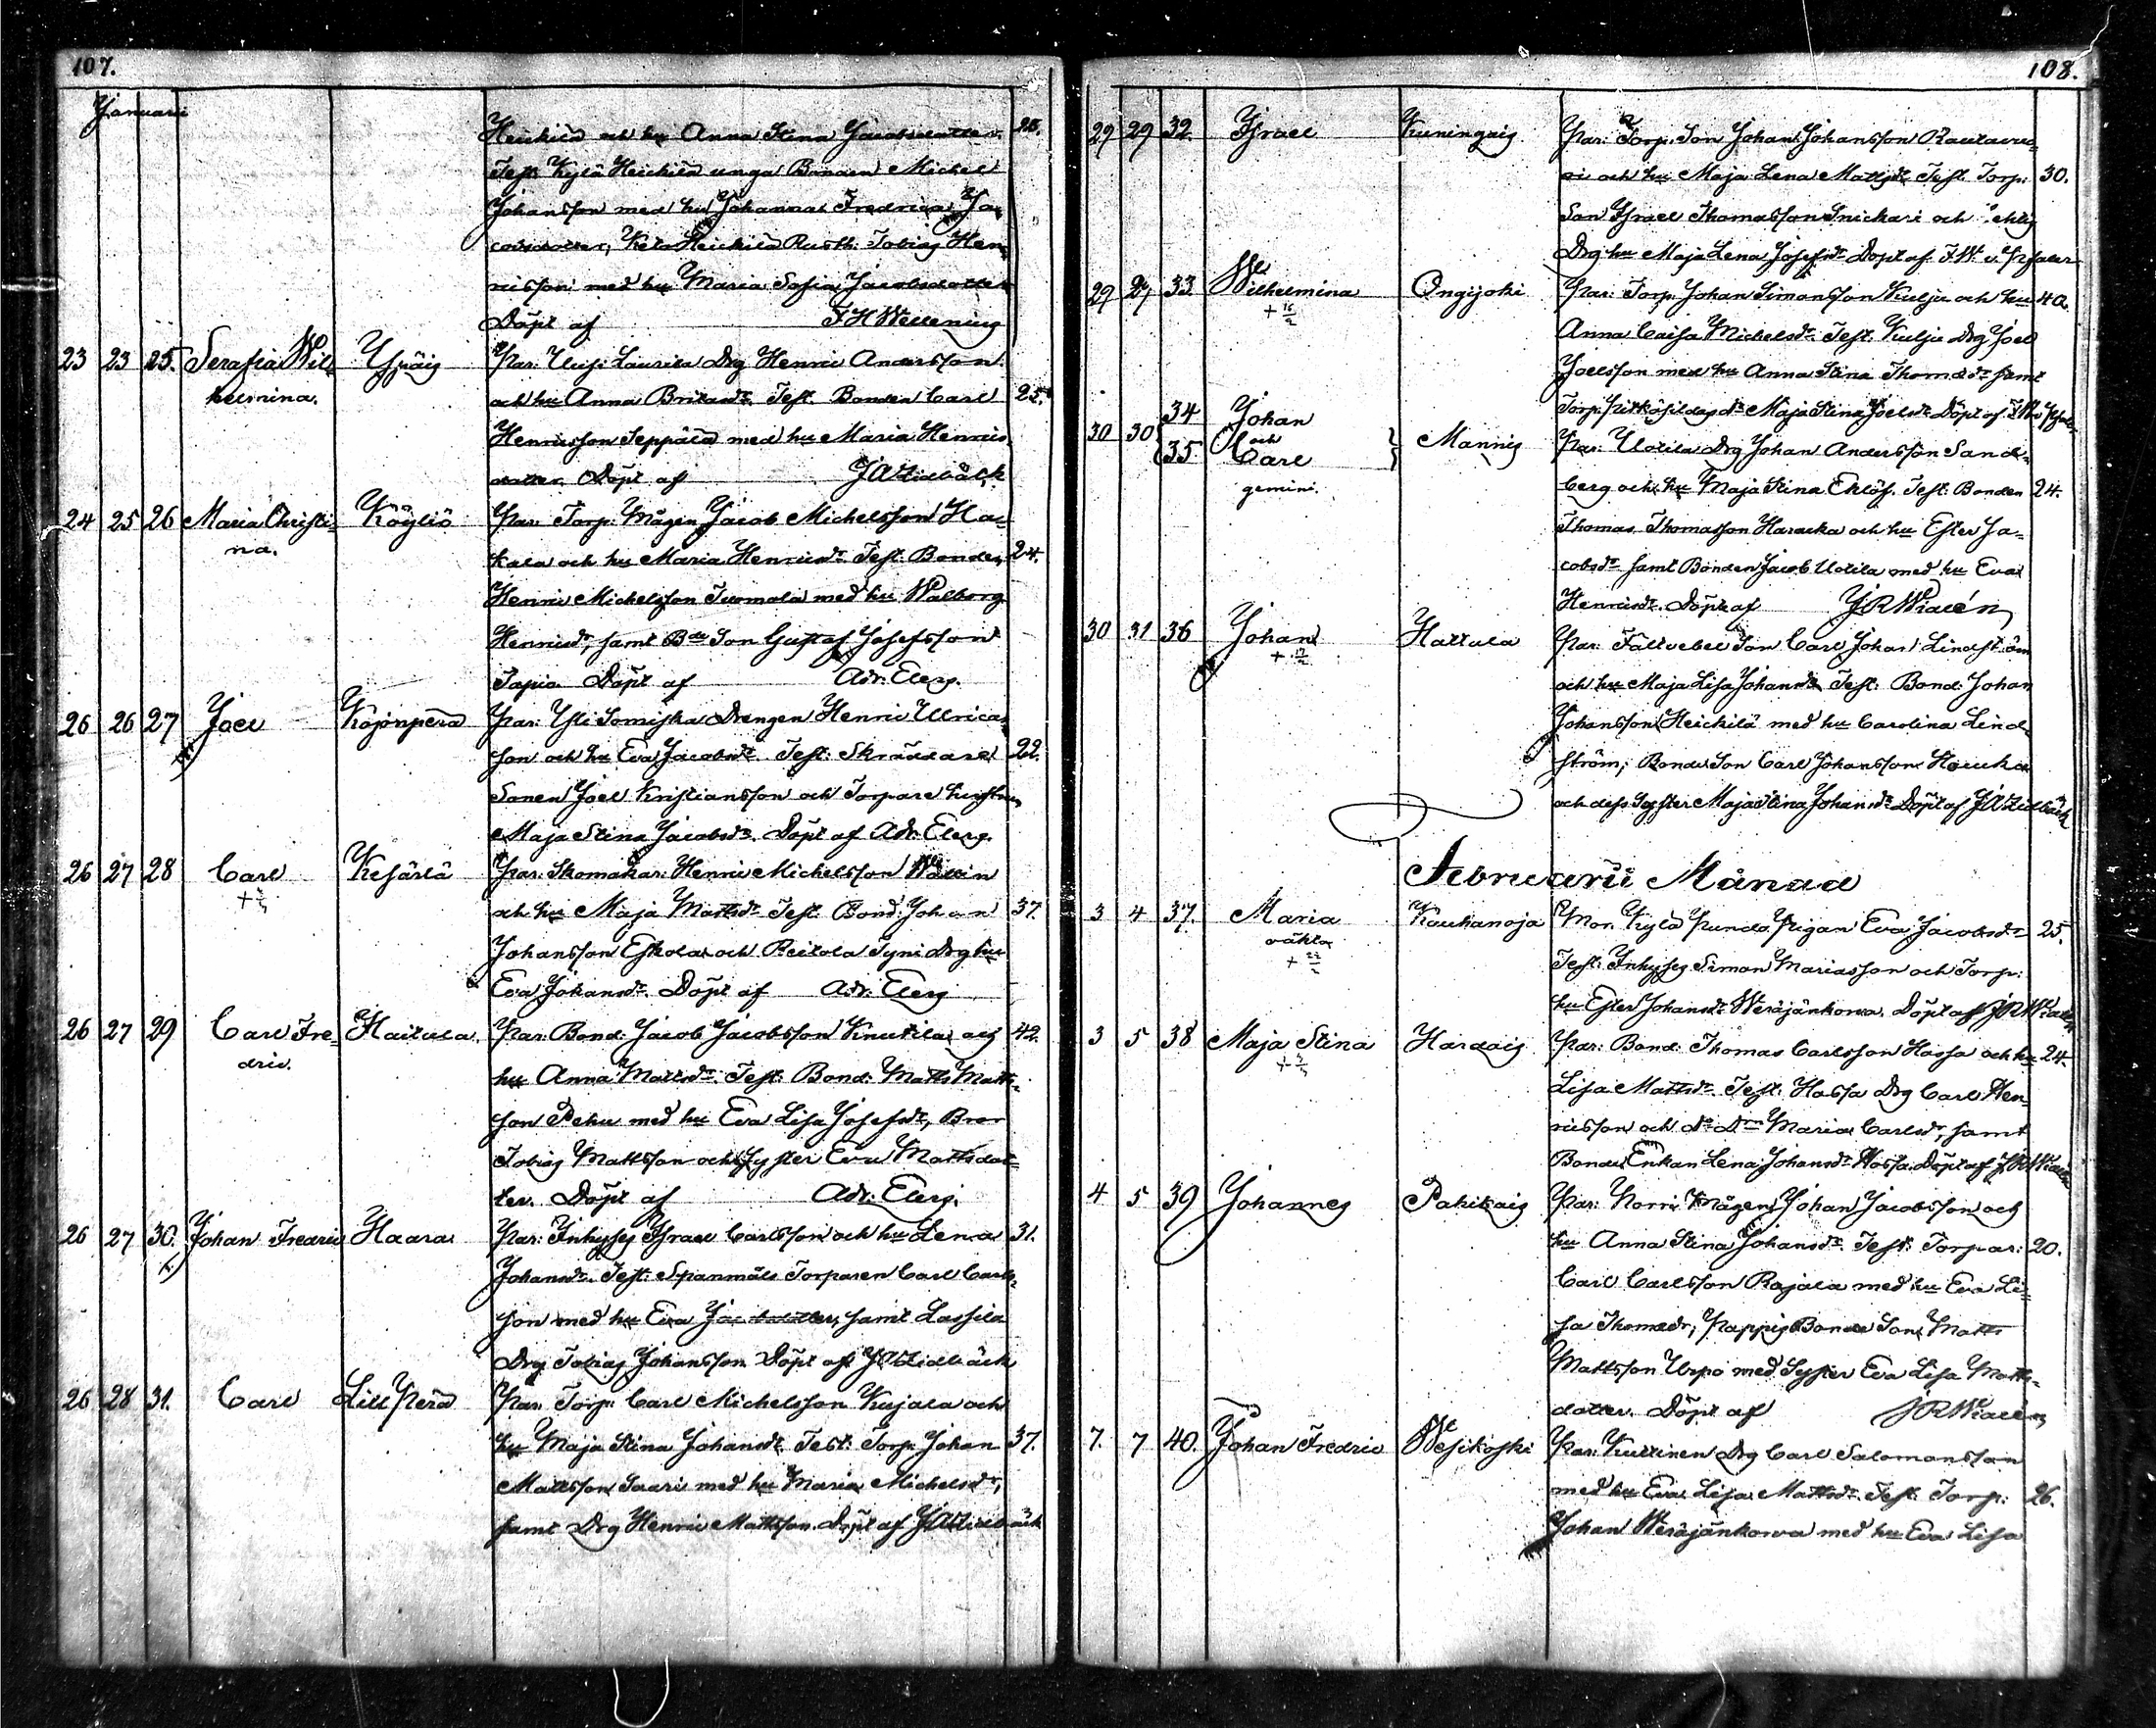 107.
Januari
Heickilä och hu Anna Stina Jacobsdotter. 28.
Test: Kylä Heickilä unga Bonden Michel
Johansson med hu Johanna Fredrica Ja-
cobsdotter, Keto Heickilä Rusth. Tobias Hen
ricsson med hu Maria Sofia Jacobsdotter
Döpt af F H Wellenius
23 23 25. Serafia Wil- Ypäis Par: Uusi Laurila Drg Henric Andersson
helmina. och hu Anna Britasdr. Test. Bonden Carl 25.
Henricsson Seppälä med hu Maria Henrics
dotter Döpt af J A Lidbäck
24 25 26 Maria Christi- Köyliö Par: Torp: Mågen Jacob Michelsson Ha-
na. kala och hu Maria Henricsdr Test. Bonden 24.
Henric Michelsson Tuomola med hu Walborg
Henricsdr, samt Bde Son Gustaf Josefsson
Tapio Döpt af Adr. Elers.
26 26 27 Joel Kojonperä Par: Yli Somiska Drengen Henric Ulrics
son och hu Eva Jacobsdr. Test: Skräddare 22.
Sonen Joel Kristiansson och Torpare hustrun
Maja Stina Jacobsdr. Döpt af Adr. Elers.
26 27 28 Carl Kesärlä Par: Skomakar: Henric Michelsson
och hu Maja Mattsdr Test. Bond: Johan 37.
Johansson Eskola och Reitola Tyni Drg hu
Eva Johansdr. Döpt af Adr. Elers
26 27 29 Carl Fre- Haitula. Par: Bond: Jacob Jacobsson Knutila och 42.
dric. hu Anna Mattsdr Test. Bond: Matts Matts-
son Pehu med hu Eva Lisa Josefsdr, Bror
Tobias Mattsson och Syster Eva Mattsdot-
ter. Döpt af Adr: Elers.
26 27 30. Johan Fredric Haara Par: Inhyses Israel Carlsson och hu Lena 31.
Johansdr. Test: Spanmäls Torparen Carl Carls-
son med hu Eva Jacobsdotter, samt Lassila
Drg Tobias Johansson Döpt af J A Lidbäck
26 28 31. Carl Lill Perä Par: Torp: Carl Michelsson Kujala och
hu Maja Stina Johansdr Test: Torp: Johan 37.
Mattsson Saari med hu Maria Michelsdr,
samt Drg Henric Mattsson Döpt af J A Lidbäck
108.
29 29 32. Israel Kuningais Par: Torp. Son Johan Johansson Rautavuo-
ri och hu Maja Lena Mattsdr Test. Torp: 30.
Son Israel Thomasson Snickari och
Drg hu Maja Lena Josefsdr Döpt af
29 29 33 Wilhelmina Ongijoki Par: Torp. Johan Simonsson Kulju och hu 40
+ 16/2 Anna Caisa Michelsdr. Test: Kulju Drg Joel
Joelsson med hu Anna Stina Thomasdr samt
34 Johan Torp: dr Maja Stina Joelsdr Döpt af
30 30 och Mannis Par: Uotila Drg Johan Andersson Sand-
35 Carl berg och hu Maja Stina Eklöf. Test: Bonden 24.
gemini. Thomas Thomasson Haracka och hu Ester Ja-
cobsdr samt Bonden Jacob Uotila med hu Eva
Henricsdr. Döpt af J R Widlén
30 31 36 Johan Hattula Par: Fältvebel Son Carl Johan Lindström
och hu Maja Lisa Johansdr Test: Bond: Johan
Johansson Heickilä med hu Carolina Lind
ström; Bonde Son Carl Johansson
och dess Syster Maja Stina Johansdr Döpt af J A Lidbäck
Februarii Månad
3 4 37. Maria Kauhanoja Mor. Kylä Punda Pigan Eva Jacobsdr 25.
oäkta Test: Inhyses Simon Mariasson och Torp:
hu Ester Johansdr Weräjänkorwa. Döpt af J R Widlén
3 5 38 Maja Stina Hardais Par: Bond: Thomas Carlsson Hossa och hu 24.
Lisa Mattsdr. Test. Hossa Drg Carl Hen-
ricsson och dr Maria Carlsdr, samt
Bonde Enkan Lena Johansdr Hossa. Döpt af J R Widlén
4 5 39 Johannes Pahikais Par: Norri Mågen Johan Jacobsson och
hu Anna Stina Johansdr. Test: Torpar: 20.
Carl Carlsson Rajala med hu Eva Li-
sa Thomasdr; Pappis Bonde Son Matts
Mattsson Uspo med Syster Eva Lisa Matts-
dotter. Döpt af J R Widlén
7. 7 40. Johan Fredric Wesikoski Par: Kuttinen Drg Carl Salomonsson
med hu Eva Lisa Mattsdr. Test: Torp: 26.
Johan Weräjänkorwa med hu Eva Lisa